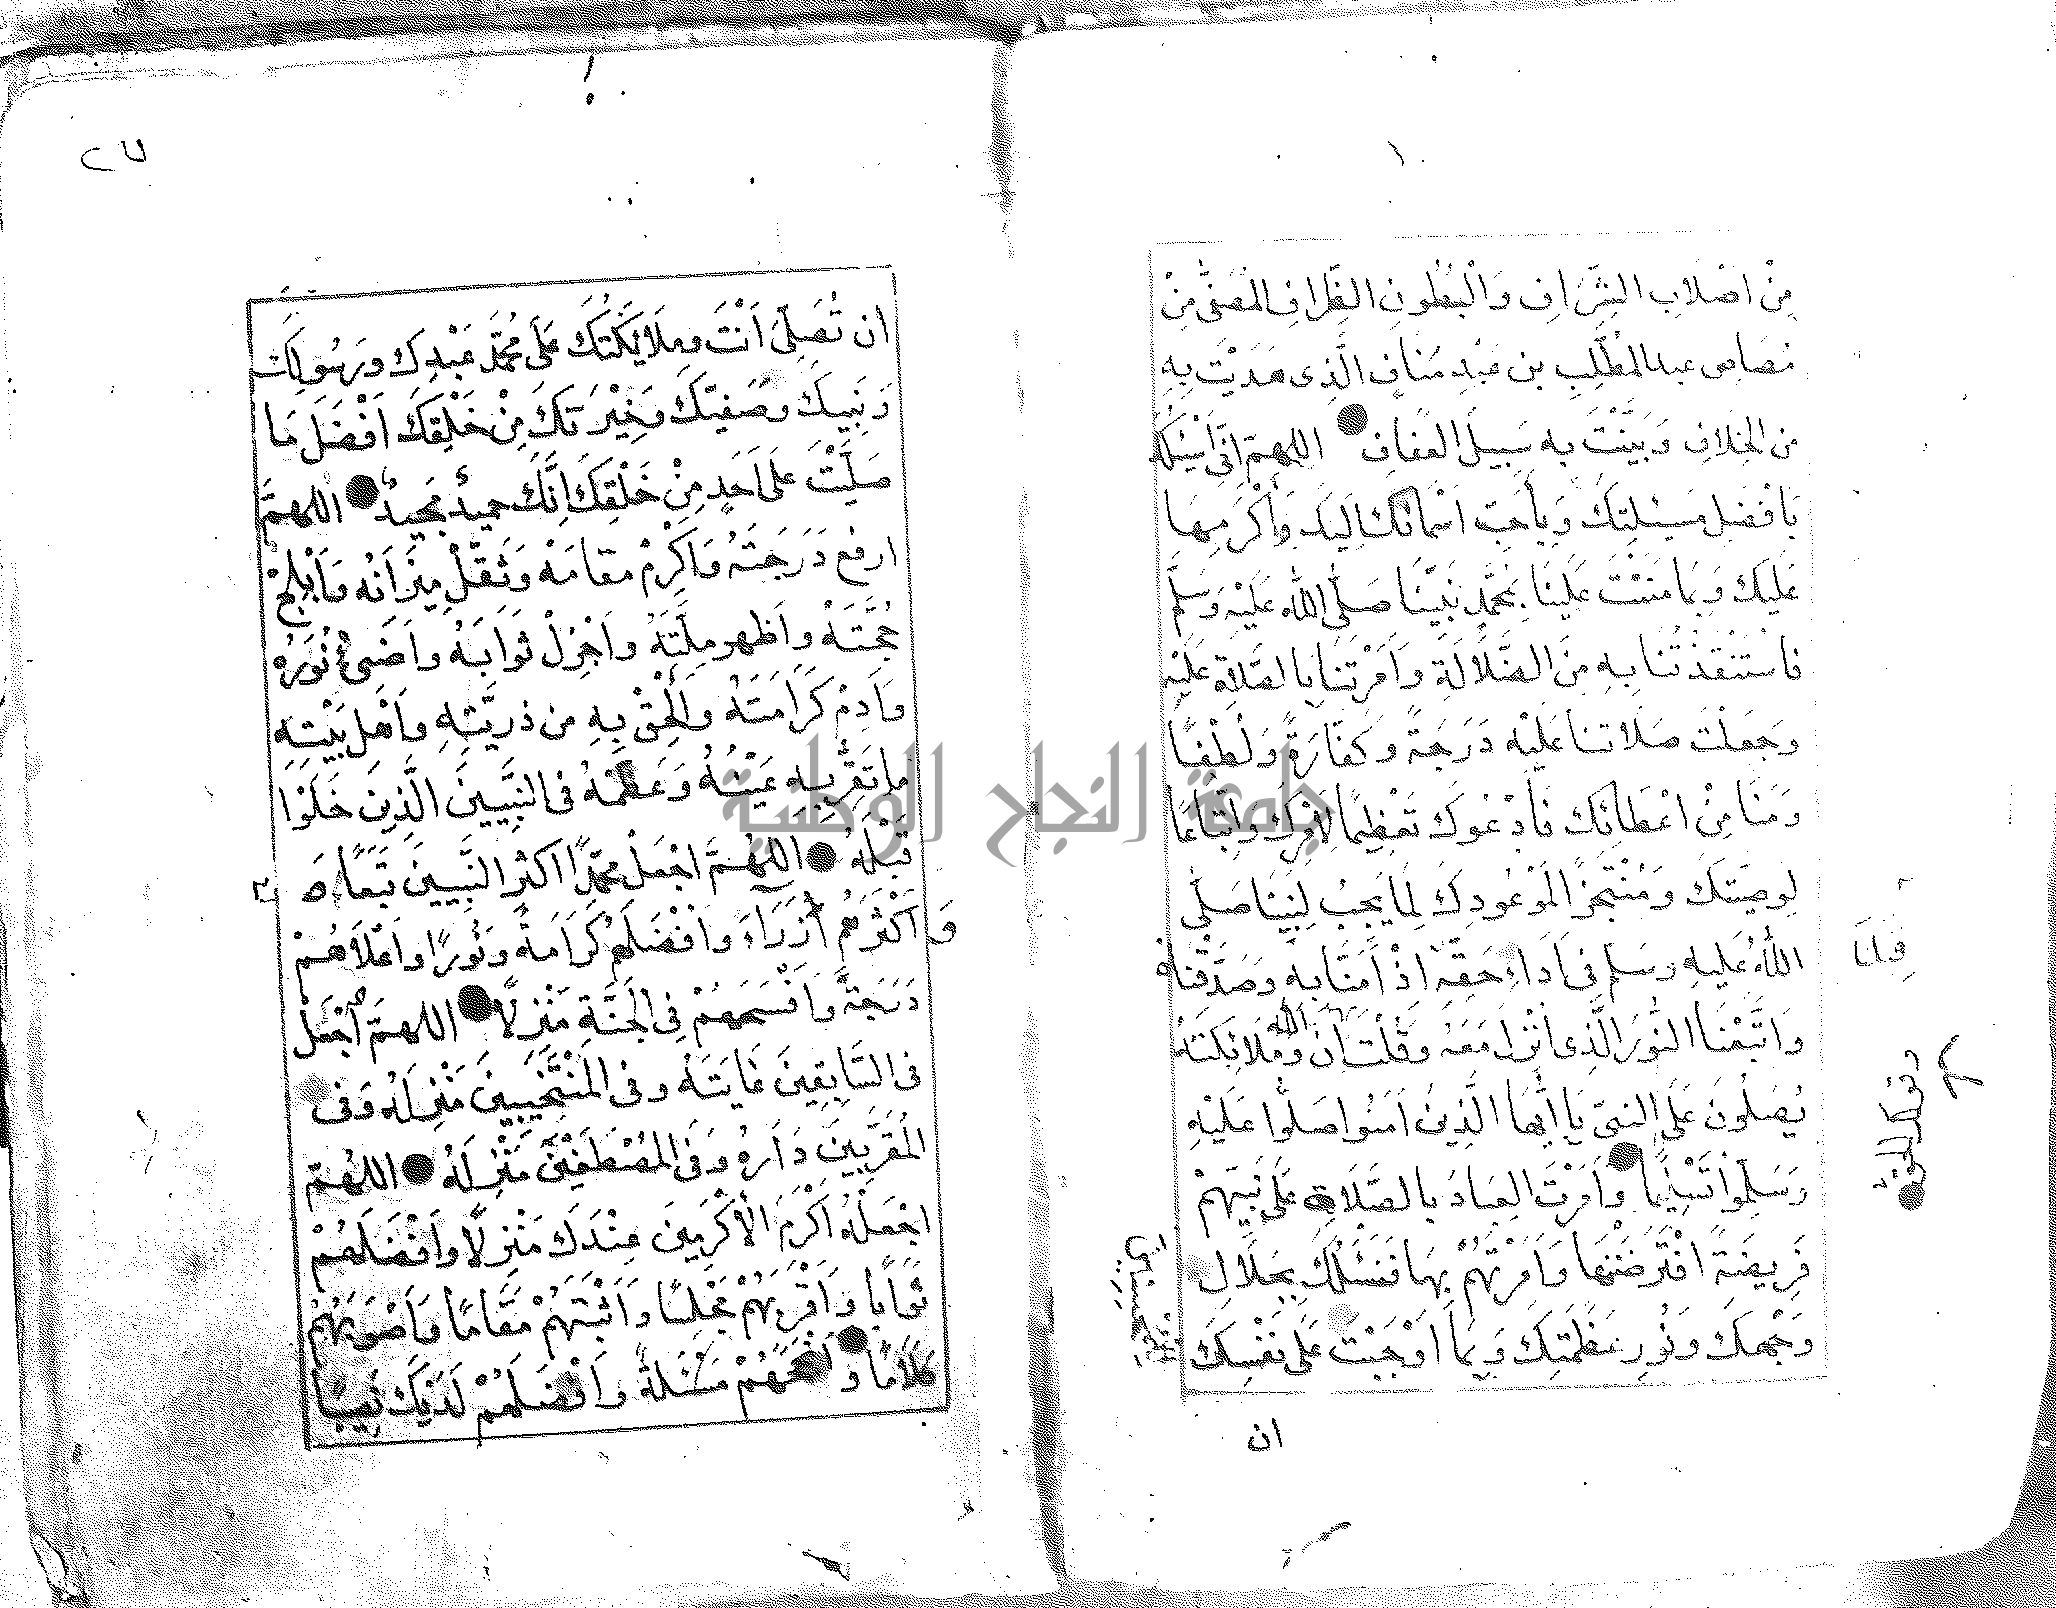 مِنْ اَصْلَابِ الشِّرَافِ وَالْبُطُونِ الظِّرَافِ المُصَفّٰى مِنْ
مُصَاصِ عبد المُطَّلِبِ بن عَبْدِ مَنَافٍ الَّذِى هَدَيْتَ بِهِ
مِنَ الخِلَافِ وَبَيَّنْتَ بِهِ سَبِيلَ العَفَافِ اللهمّ اِنّى اَسْئلُكَ
بِاَفْضَلِ مَسْئلَتِكَ وَبِاَحَبِّ اَسْمَائِكَ اِلَيكَ وَاَكْرَمِهَا
عَلَيكَ وَبِمَا مَنَنْتَ عَلَيْنَا بِمُحَمَّدٍ نَبِيِّنَا صَلَّى اللهُ عَلَيْهِ وَسَلَّم
فَاسْتَنْقَذْتَنَا بِهِ مِنَ الضَّلَالَةِ وَاَمَرْتَنَا بِالصَّلَاةِ عَلَيْهِ
وَجَعَلْتَ صَلَاتَنَا عَلَيْهِ دَرَجَةً وَكَفَّارَةً وَلُطْفًا
وَمَنًّا مِنْ اعْطَائِكَ فَاَدْعُوكَ تَعْظِيمًا لِاَمْرِكَ وَاتِّبَاعًا
لِوَصِيَّتِكَ وَمُنْتَجِزًا لِمَوْعُودِكَ لِمَا يَجِبُ لِنَبِيِّنَا صَلَّى
اللهُ عَلَيهِ وسَلم فى اَدَاءِ حَقِّهِ اِذْ اٰمَنَّا بِهِ وَصَدَّقْنَاهُ
وَاتَّبَعْنَا النُّورَ الَّذِى اُنْزِلَ مَعَهُ وَقُلْتَ اِنَّ الله وَمَلَائِكَتَهُ
يُصَلُّونَ عَلَى النبىِّ يَا اَيُّهَا الَّذِينَ اٰمَنُوا صَلُّوا عَلَيْهِ
وَسَلِّمُوا تَسْلِيمًا وَاَمَرْتَ العِبَادَ بِالصَّلَاةِ عَلَى نَبِيِّهِمْ
فَرِيضَةً افْتَرَضْتَهَا وَاَمَرْتَهُمْ بِهَا فَنَسْئَلُكَ بِجَلَالِ
وَجْهِكَ وَنُورِ عَظَمَتِكَ وَبِمَا اَوْجَبْتَ عَلَى نَفْسِكَ
ان
٢٧
ان تُصَلِّىَ اَنْتَ وَمَلَائِكَتُكَ عَلَى مُحَمَّدٍ عَبْدِكَ وَرَسُولِكَ
وَنَبِيِّكَ وَصَفِيِّكَ وَخِيْرَتِكَ مِنْ خَلْقِكَ اَفْضَلَ مَا
صَلَّيْتَ عَلَى اَحَدٍ مِنْ خَلْقِكَ اِنَّكَ حَمِيدٌ مَجِيدٌ اللهمَّ
ارفع دَرَجَتَهُ وَاَكْرِمْ مَقَامَهُ وَثَقِّلْ مِيزَانَهُ وَاَبْلِجْ
حُجَّتَهُ وَاَظهِر مِلَّتَهُ وَاَجْزِلْ ثَوَابَهُ وَاَضِىءْ نُورَهُ
وَاَدِمْ كَرَامَتَهُ وَاَلْحِقْ بِهِ مِن ذُرِّيَّتِهِ وَاَهْلِ بَيْتِهِ
مَا تَقَرُّ بِهِ عَيْنُهُ وَعَظِّمْهُ فى النَّبِيِّينَ الَّذِينَ خَلَوْا
قَبْلَهُ اللهُمَّ اجْعَلْ مُحَمَّدًا اَكْثَرَ النَّبِيِّينَ تَبَعًا
وَاَكْثَرَهُم اُزَرَاءَ وَاَفْضَلَهُمْ كَرَامَةً وَنُورًا وَاَعْلَاهُمْ
دَرَجَةً وَاَفْسَحَهُمْ فِى الجَنَّةِ مَنْزِلًا اللهمَّ اجْعَلْ
فى السَّابِقِينَ غَايَتَهُ وفى المُنْتَخَبِينَ مَنْزِلَهُ وَفى
المُقَرَّبِينَ دَارَهُ وَفى المُصْطَفَيْنَ مَنْزِلَهُ اللهُمَّ
اجْعَلْهُ اَكْرَمَ الْاَكْرَمِينَ عِنْدَكَ مَنْزِلًا وَاَفْضَلَهُمْ
ثَوَابًا وَاَقْرَبَهُمْ مَجْلِسًا وَاَثْبَتَهُمْ مَقَامًا وَاَصْوَبَهُمْ
كَلَامًا وَاَنْجَحَهُمْ مَسْئَلَةً وَاَفْضَلَهُمْ لَدَيْكَ نَصِيبًا
جامعة النجاح الوطنية